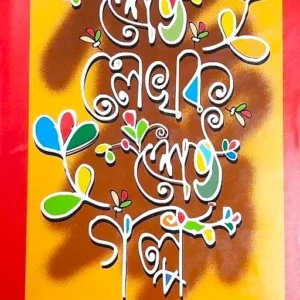 শ্রেষ্ঠ
লেখক
শ্রেষ্ঠ
গল্প